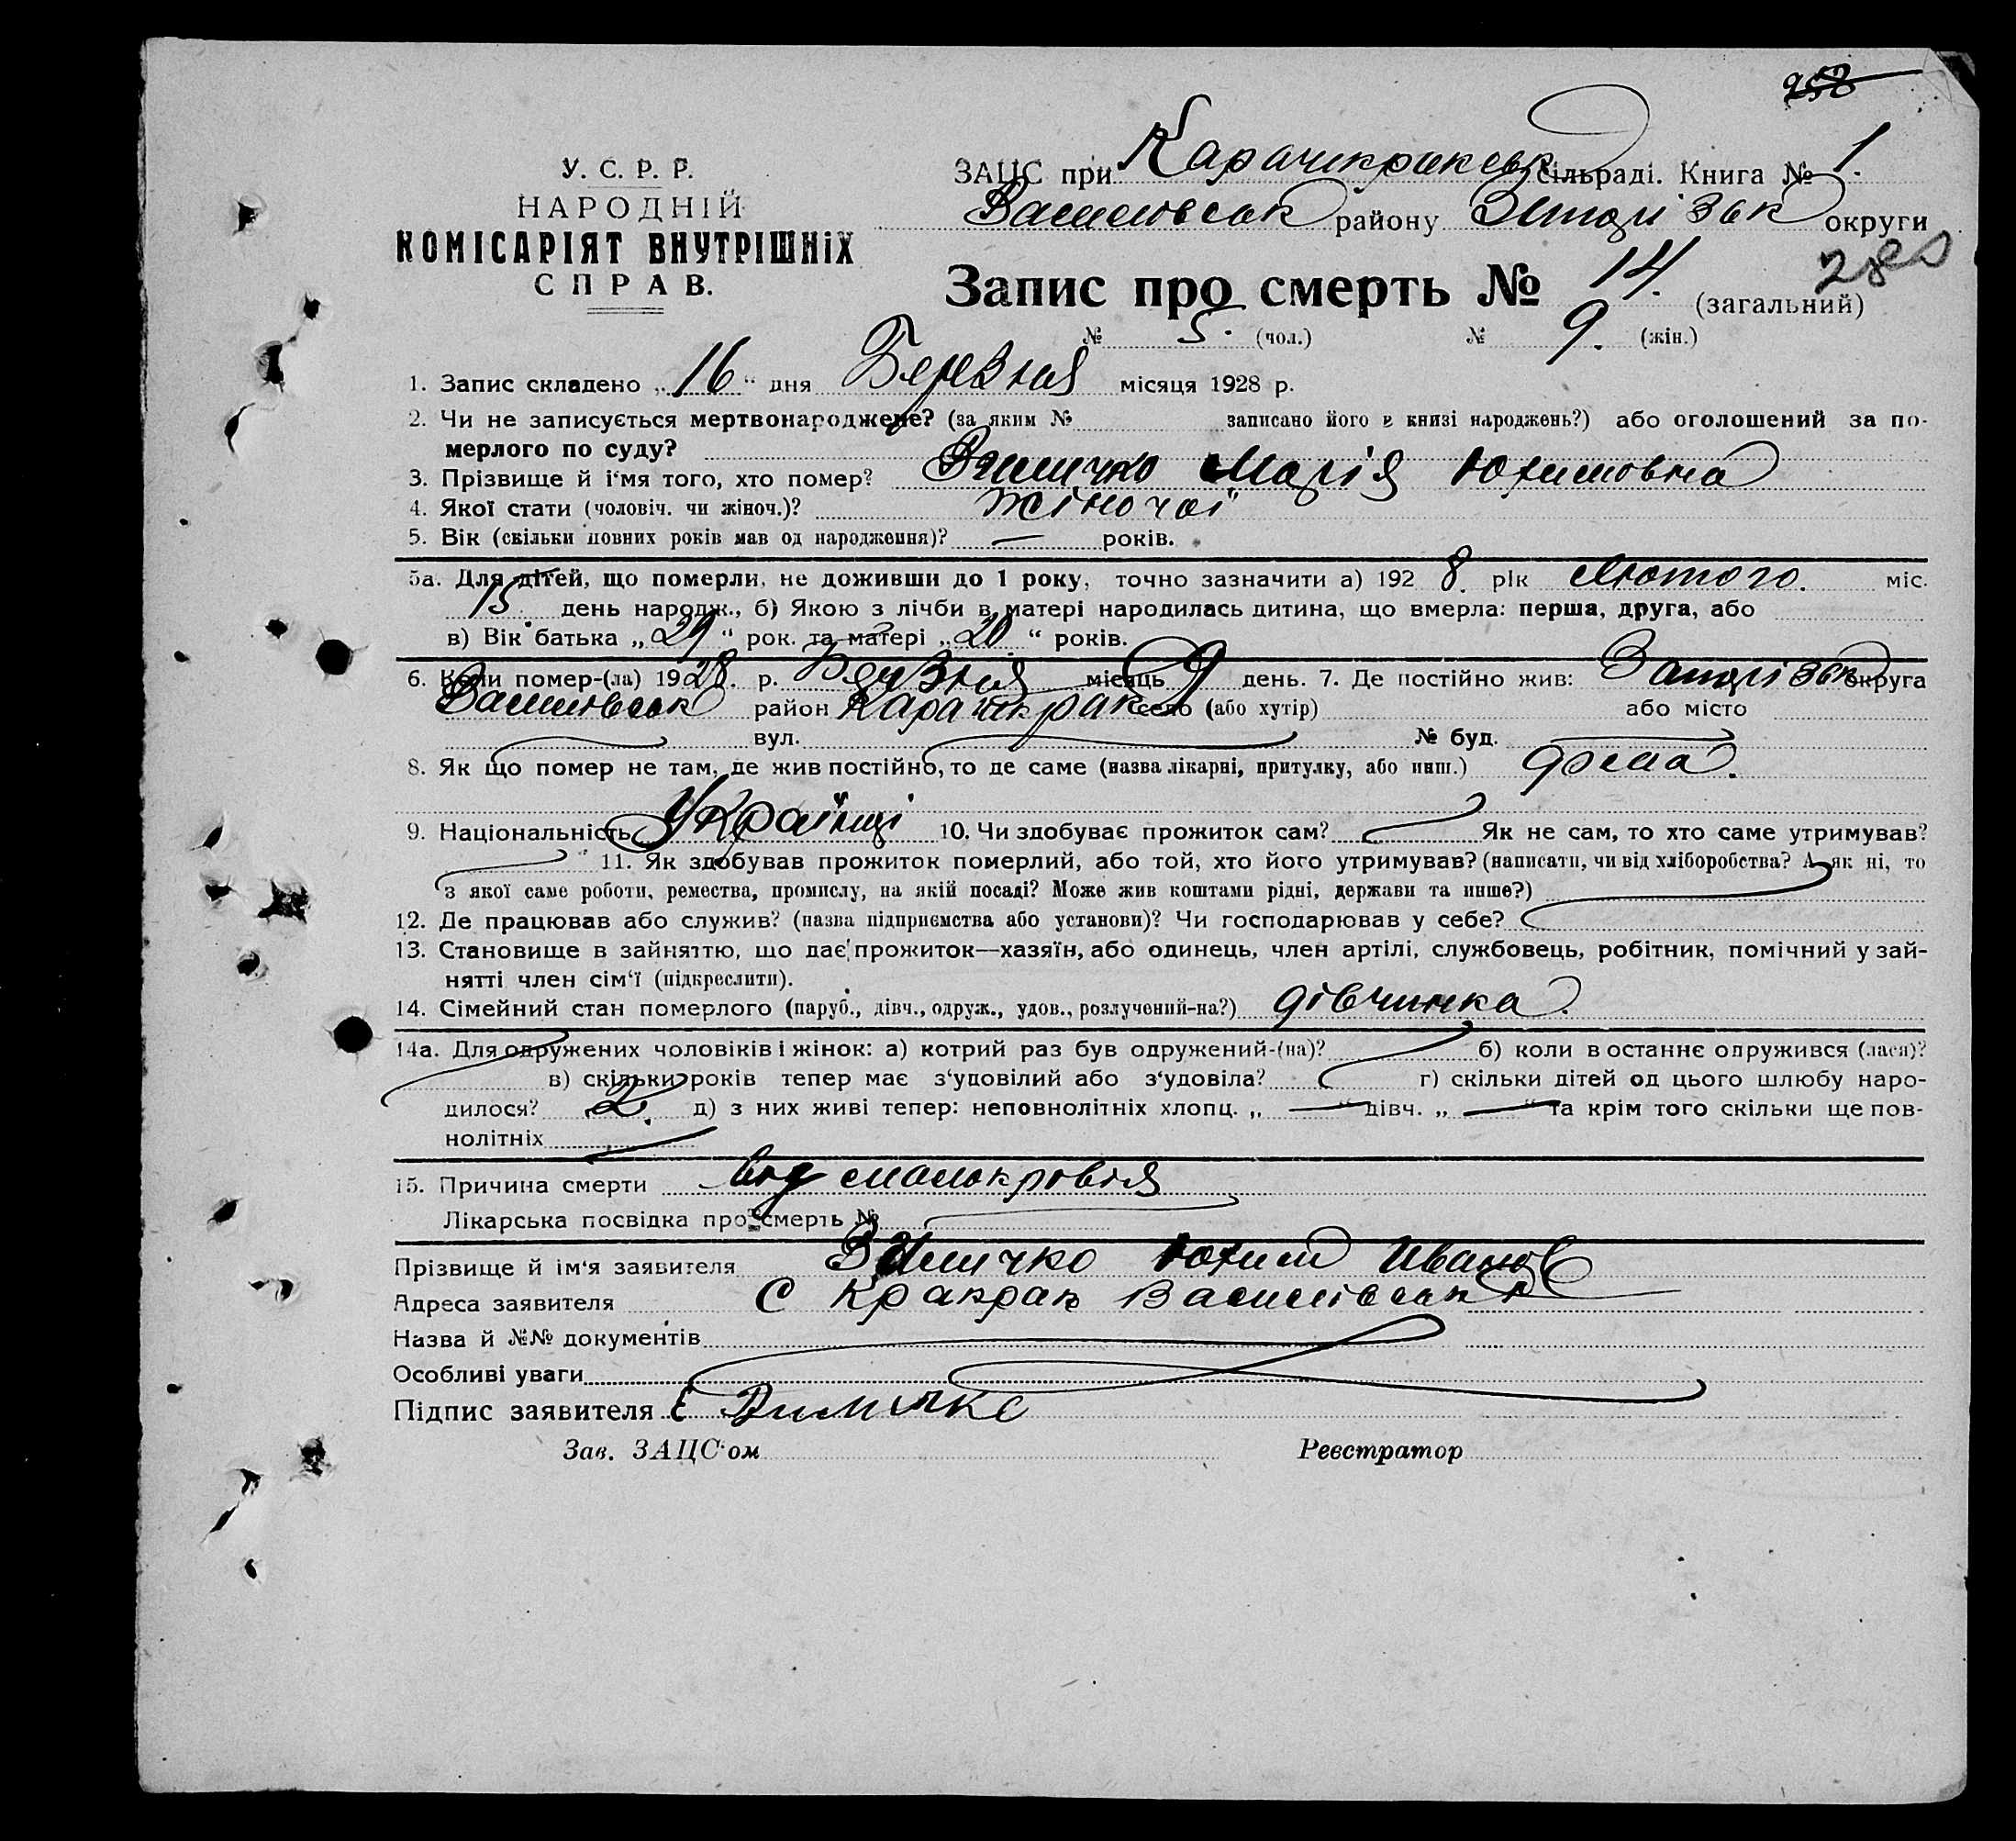 958
У. С. Р. Р.
НАРОДНІЙ
КОМІСАРІЯТ ВНУТРІШНІХ
СПРАВ.
ЗАЦС при Карачикракськ сільраді. Книга № 1.
Василівськ району Запорізьк округи
280
Запис про смерть № 14. (загальний)
№ 5. (чол.) № 9. (жін.)
1. Запис складено „16“ дня Березня місяця 1928 р.
2. Чи не записується мертвонароджене? (за яким № записано його в книзі народжень?) або оголошений за по-
мерлого по суду?
3. Прізвище й і‘мя того, хто помер? Марія Юхимовна
4. Якої стати (чоловіч. чи жіноч.)? жіночої
5. Вік (скільки повних років мав од народження)? — років.
5а. Для дітей, що померли, не доживши до 1 року, точно зазначити а) 1928. рік Лютого. міс.
15. день народж., б) Якою з лічби в матері народилась дитина, що вмерла: перша, друга, або
в) Вік батька „29“ рок. та матері „20.“ років.
6. Коли помер-(ла) 1928. р. Березня місяць 9 день. 7. Де постійно жив: Запорізьк округа
Василівськ район Карачикрак село (або хутір) або місто
вул. № буд.
8. Як що помер не там, де жив постійно, то де саме (назва лікарні, притулку, або инш.) дома.
9. Національність Українці 10. Чи здобуває прожиток сам? Як не сам, то хто саме утримував?
11. Як здобував прожиток померлий, або той, хто його утримував? (написати, чи від хліборобства? А як ні, то
з якої саме роботи, ремества, промислу, на якій посаді? Може жив коштами рідні, держави та инше?)
12. Де працював або служив? (назва підприємства або установи)? Чи господарював у себе?
13. Становище в зайняттю, що дає прожиток—хазяїн, або одинець, член артілі, службовець, робітник, помічний у зай-
нятті член сім‘ї (підкреслити).
14. Сімейний стан померлого (паруб., дівч., одруж., удов., розлучений-на?) дівчинка.
14а. Для одружених чоловіків і жінок: а) котрий раз був одружений-(на)? б) коли в останнє одружився (лася)?
в) скільки років тепер має з‘удовілий або з‘удовіла? г) скільки дітей од цього шлюбу наро-
дилося? 2. д) з них живі тепер: неповнолітніх хлопц. „—“ дівч. „—“ та крім того скільки ще пов-
нолітніх
15. Причина смерти від малокровія
Лікарська посвідка про смерть №
Прізвище й ім‘я заявителя Юхим Иванов
Адреса заявителя С Кракрак Василівськ р
Назва й №№ документів
Особливі уваги
Підпис заявителя
Зав. ЗАЦС‘ом Реєстратор